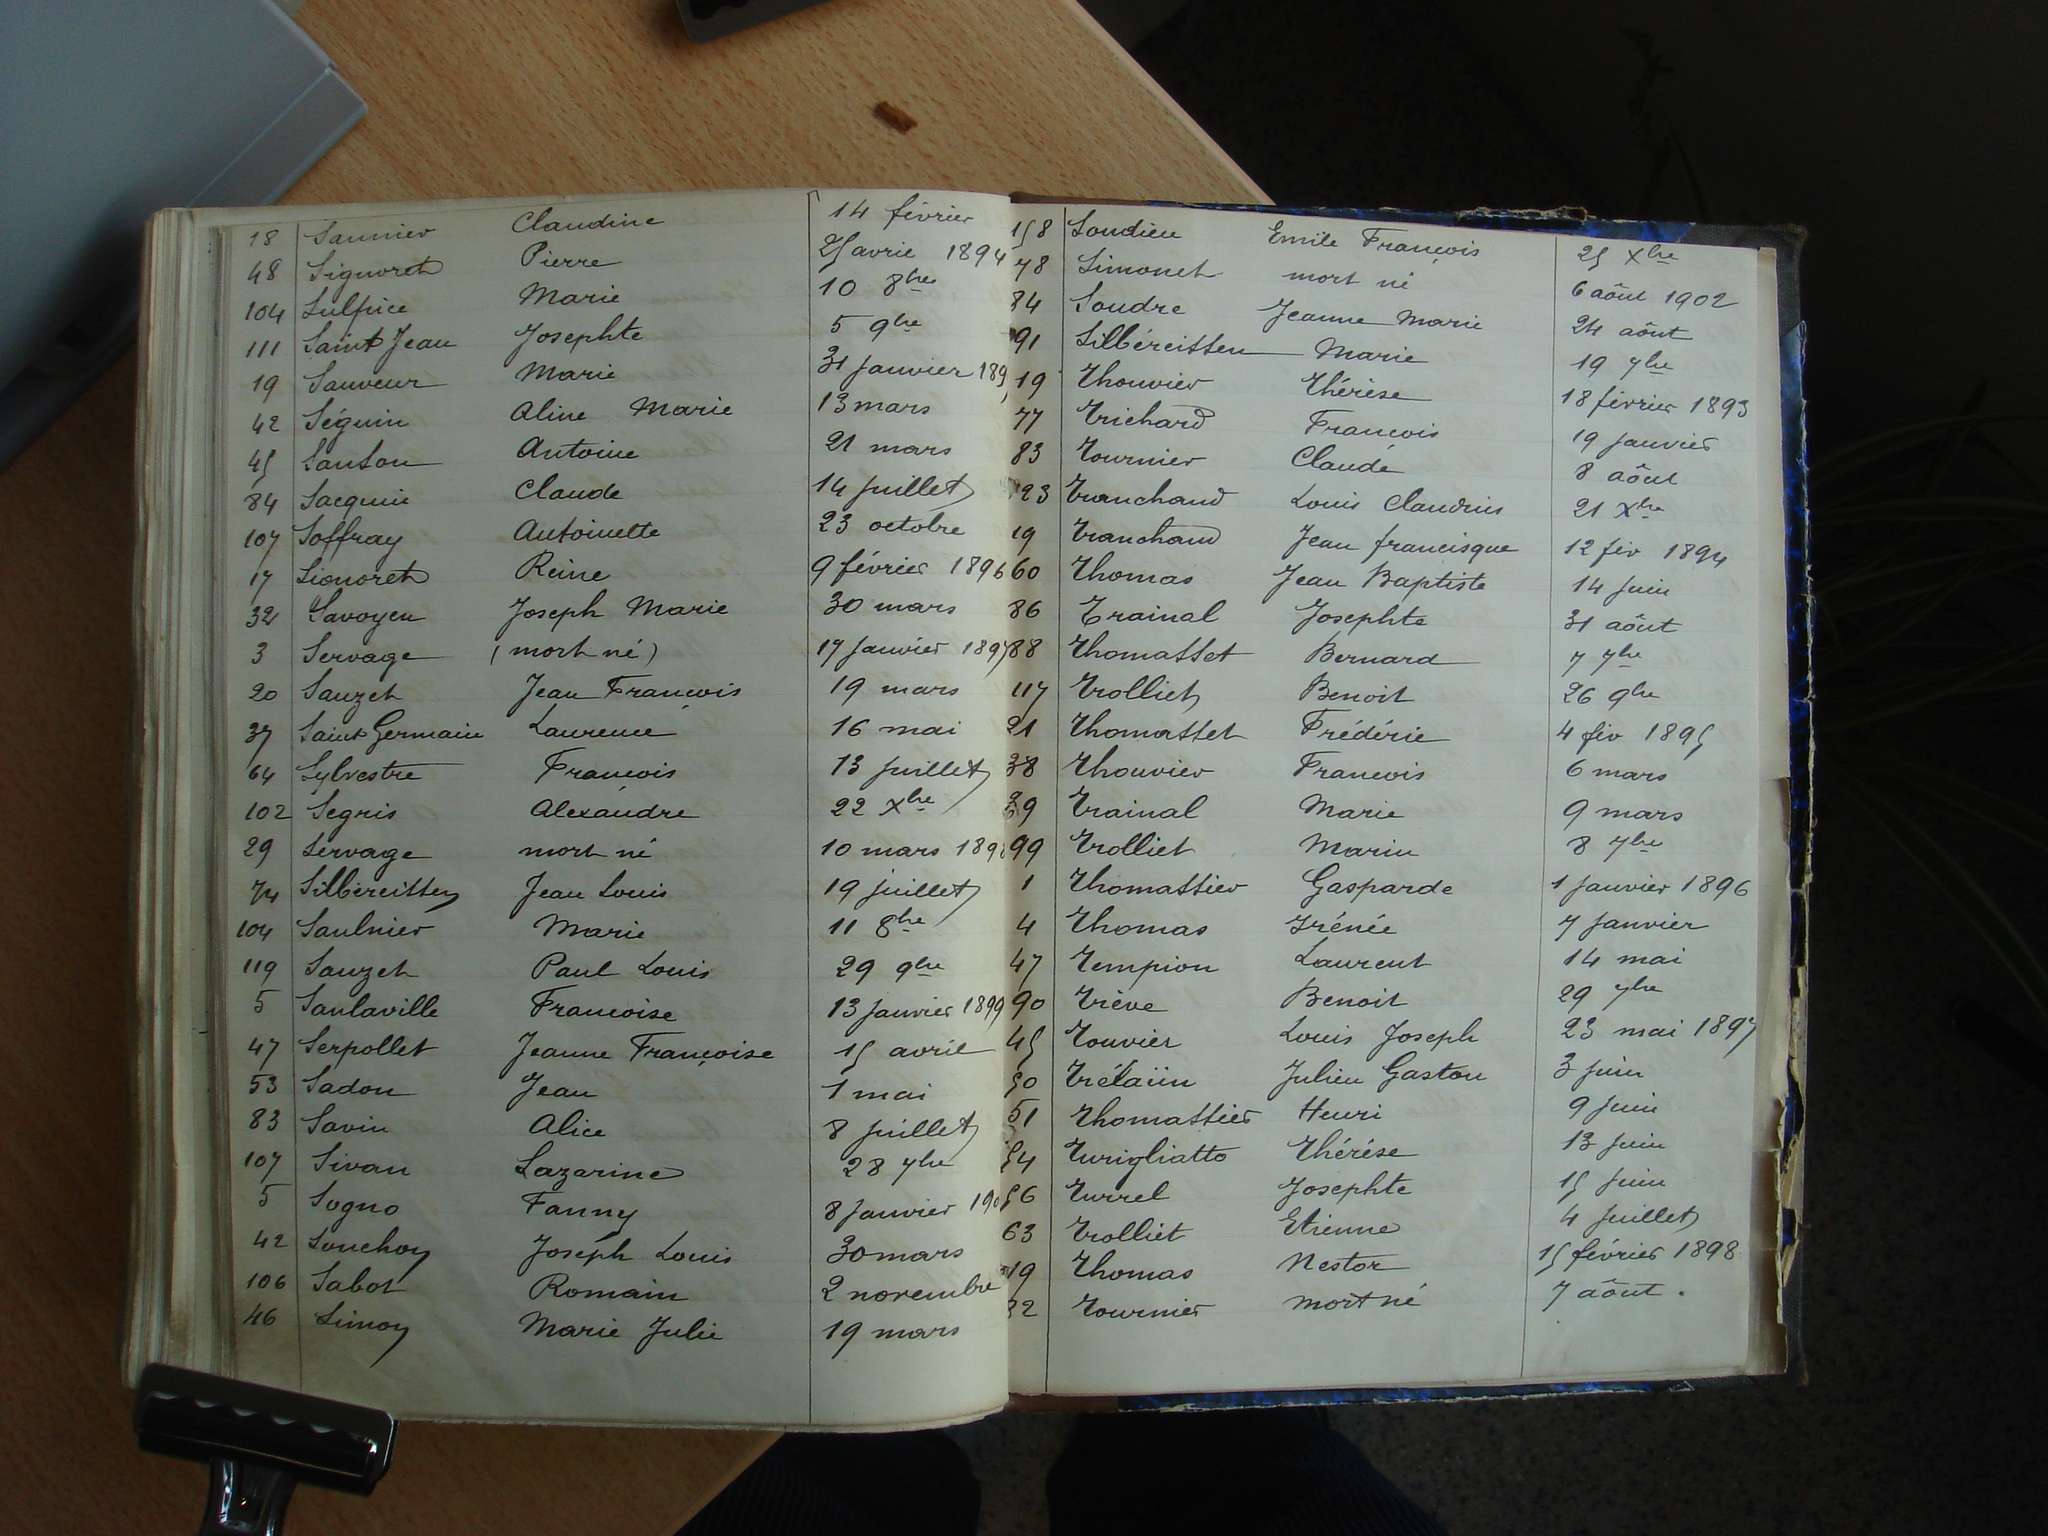 18 Saunier Claudine 14 février
48 Signoret Pierre 25 avril 1894
104 Sulpice Marie 10 8bre
111 Saint Jean Josephte 5 9bre
19 Sauveur Marie 31 janvier 189
42 Séguin Aline Marie 13 mars
45 Santon Antoine 21 mars
84 Sacquin Claude 14 juillet
107 Soffray Antoinette 23 octobre
17 Sionoret Reine 9 février 1896
32 Savoyen Joseph Marie 30 mars
3 Servage (mort né) 17 janvier 1897
20 Sauzet Jean François 19 mars
37 Saint Germain Laurence 16 mai
64 Sylvestre François 13 juillet
102 Segris Alexandre 22 Xbre
29 Servage mort né 10 mars 189
74 Silbéreissen Jean Louis 19 juillet
104 Saulnier Marie 11 8bre
119 Sauzet Paul Louis 29 9bre
5 Saulaville Francoise 13 janvier 1899
47 Serpollet Jeanne Françoise 15 avril
53 Sadon Jean 1 mai
83 Savin Alice 8 juillet
107 Sivan Lazarine 28 7bre
5 Sogno Fanny 8 janvier 190
42 Souchon Joseph Louis 30 mars
106 Sabot Romain 2 novembre
46 Simon Marie Julie 19 mars
158 Soudieu Emile François 25 Xbre
78 Simonet mort né 6 aôut 1902
84 Soudre Jeanne Marie 24 aôut
91 Silbéreissen Marie 19 7bre
19 Thouvier Thérèse 18 février 1893
77 Trichard François 19 janvier
83 Tournier Claude 8 aôut
23 Tranchand Louis Claudius 21 Xbre
19 Tranchand Jean francisque 12 fév 1894
60 Thomas Jean Baptiste 14 juin
86 Trainal Josephte 31 aôut
88 Thomasset Bernard 7 7bre
117 Trolliet Benoit 26 9bre
21 Thomasset Frédéric 4 fév 1895
38 Thouvier Francois 6 mars
39 Trainal Marie 9 mars
99 Trolliet Marin 8 7bre
1 Thomassier Gasparde 1 janvier 1896
4 Thomas Irénée 7 janvier
47 Tempion Laurent 14 mai
90 Trève Benoit 29 7bre
45 Touvier Louis Joseph 23 mai 1897
50 Julien Gaston 3 juin
51 Thomassier Henri 9 juin
54 Turigliatto Thérése 13 juin
56 Turrel Josephte 15 juin
63 Trolliet Etienne 4 juillet
19 Thomas Nestor 15 février 1898
22 Tournier mort né 7 aôut.